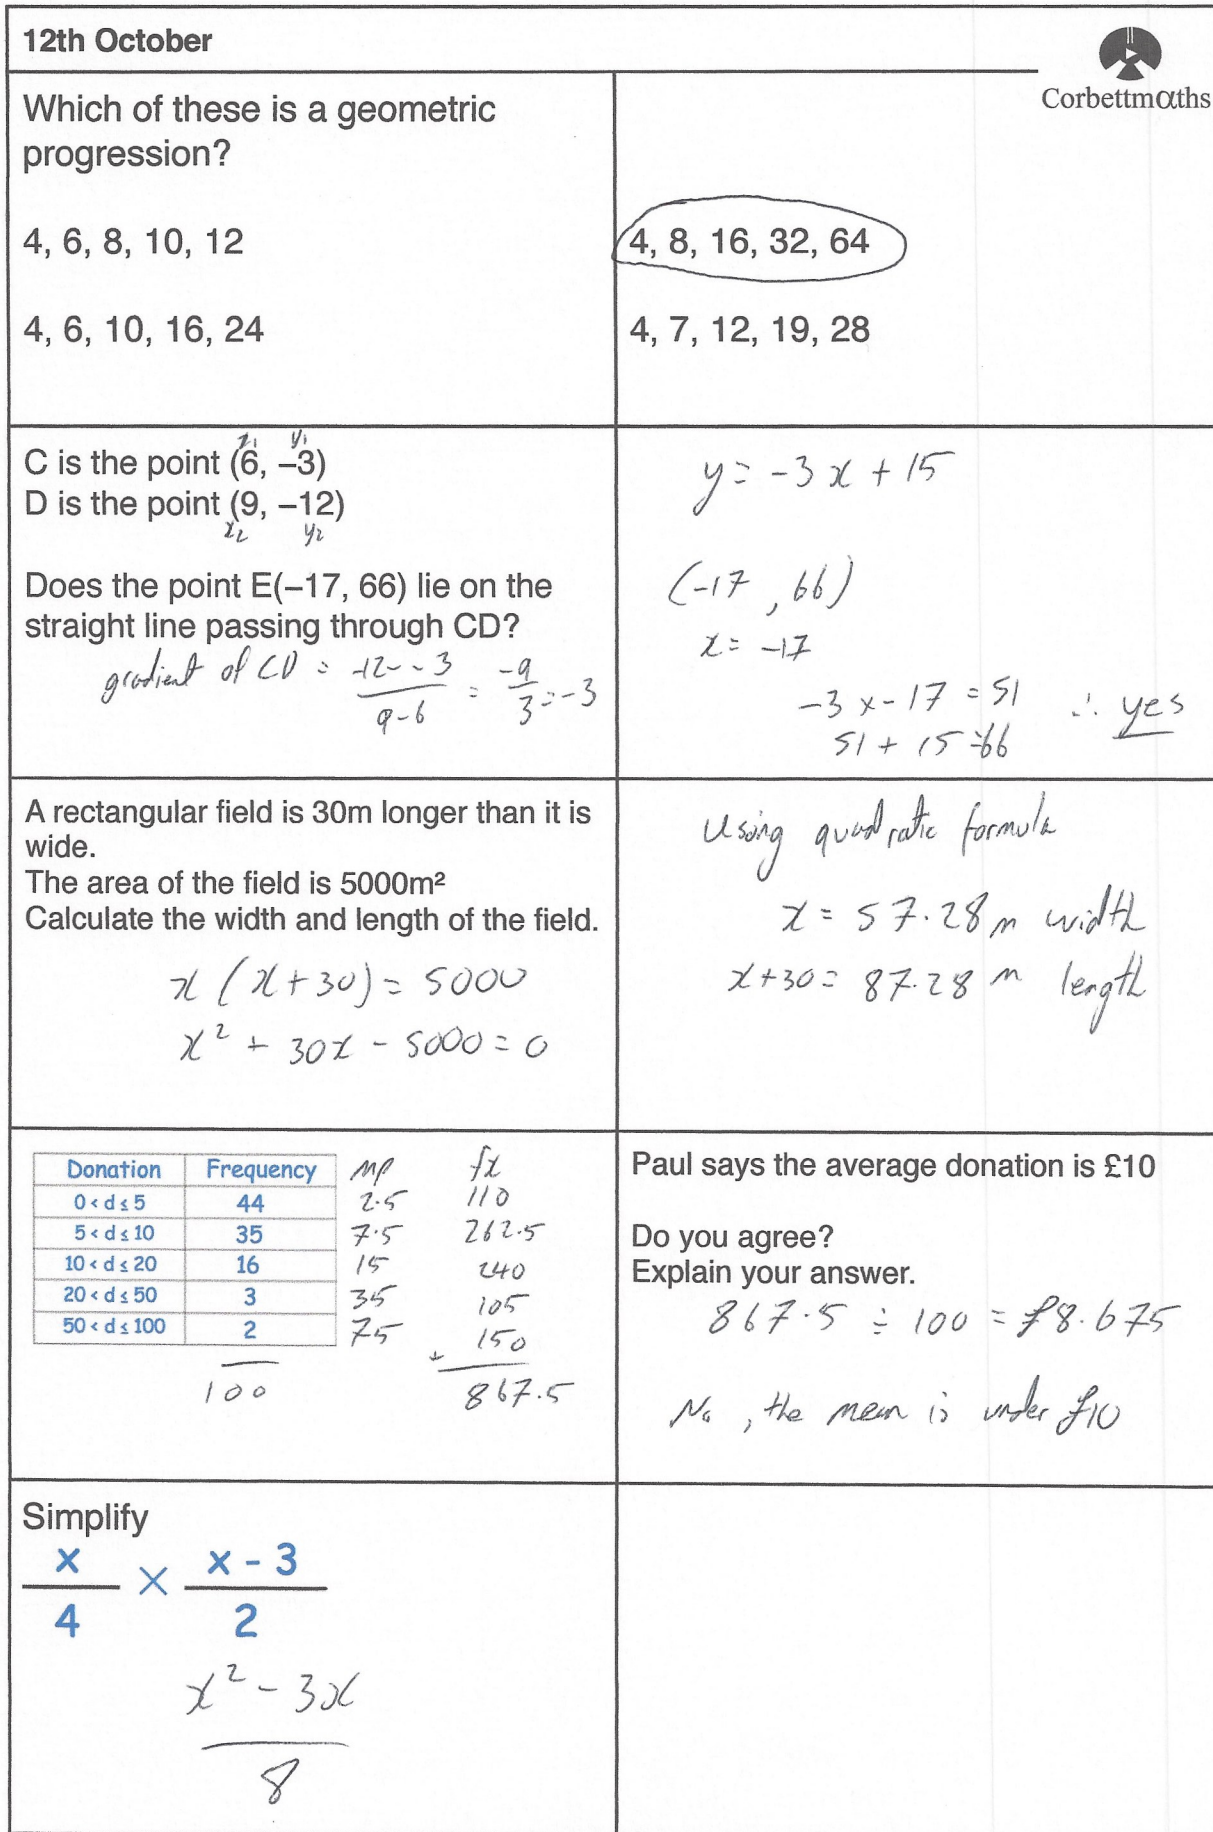 12th October
Corbettmαths
Which of these is a geometric
progression?
4, 6, 8, 10, 12
4, 8, 16, 32, 64
4, 6, 10, 16, 24
4, 7, 12, 19, 28
x₁ y₁
C is the point (6, –3)
D is the point (9, –12)
x₂ y₂
Does the point E(–17, 66) lie on the
straight line passing through CD?
gradient of CD = -12--3 / 9-6 = -9/3 = -3
y = -3x + 15
(-17, 66)
x = -17
-3 x - 17 = 51
51 + 15 = 66
∴ yes
A rectangular field is 30m longer than it is
wide.
The area of the field is 5000m²
Calculate the width and length of the field.
x(x+30) = 5000
x² + 30x - 5000 = 0
Using quadratic formula
x = 57.28m width
x+30 = 87.28m length
Donation Frequency MP fx
0 < d ≤ 5 44 2.5 110
5 < d ≤ 10 35 7.5 262.5
10 < d ≤ 20 16 15 240
20 < d ≤ 50 3 35 105
50 < d ≤ 100 2 75 + 150
100 867.5
Paul says the average donation is £10
Do you agree?
Explain your answer.
867.5 ÷ 100 = £8.675
No, the mean is under £10
Simplify
x/4 × x - 3/2
x² - 3x
8